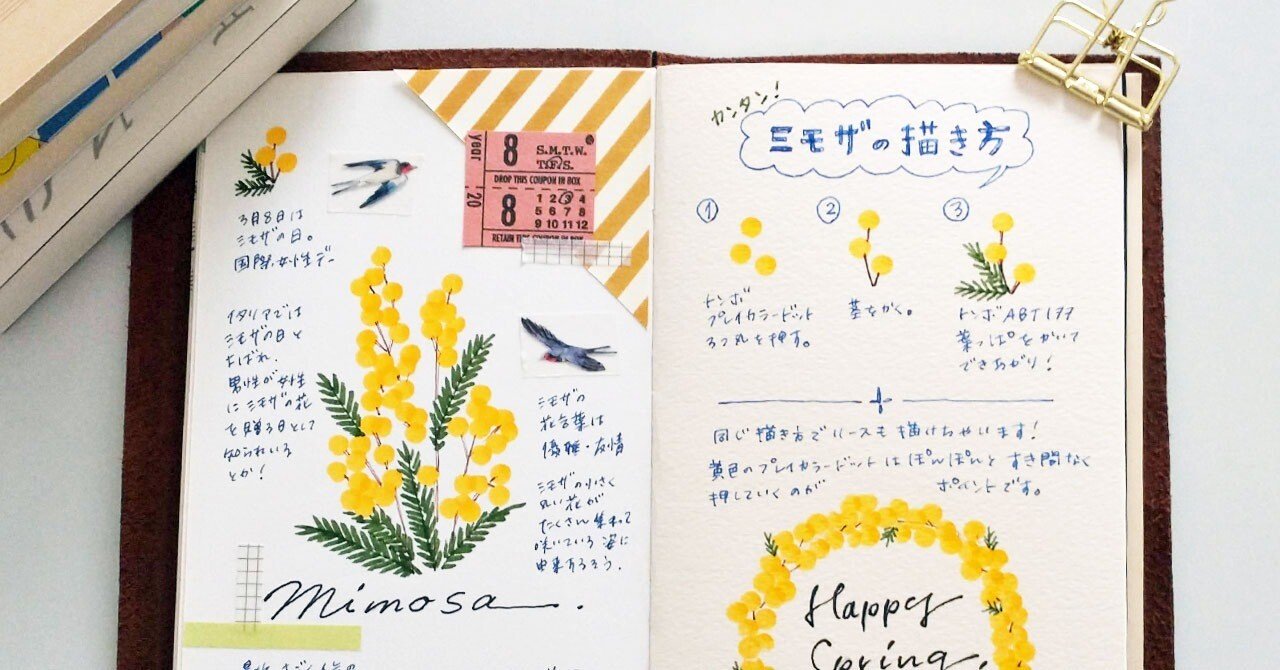 3月8日は
ミモザの日。
国際女性デー
イタリアでは
ミモザの日と
よばれ、
男性が女性
にミモザの花
を贈る日として
知られいる
とか!
year
8
S.M.T.W.
T.F.S.
DROP THIS COUPON IN BOX
20
8
1 2 3 4
5 6 7 8
9 10 11 12
RETAIN THIS COUPON IN BOX
ミモザの
花言葉は
優雅・友情
ミモザの小さく
丸い花が
たくさん集まって
咲いている姿に
由来するそう。
mimosa.
カンタン!
ミモザの描き方
①
トンボ
プレイカラードット
3つ丸を押す。
②
茎をかく。
③
トンボABT177
葉っぱをかいて
できあがり!
同じ描き方でリースも描けちゃいます!
黄色のプレイカラードットはぽんぽんとすき間なく
押していくのが ポイントです。
Happy
Spring.